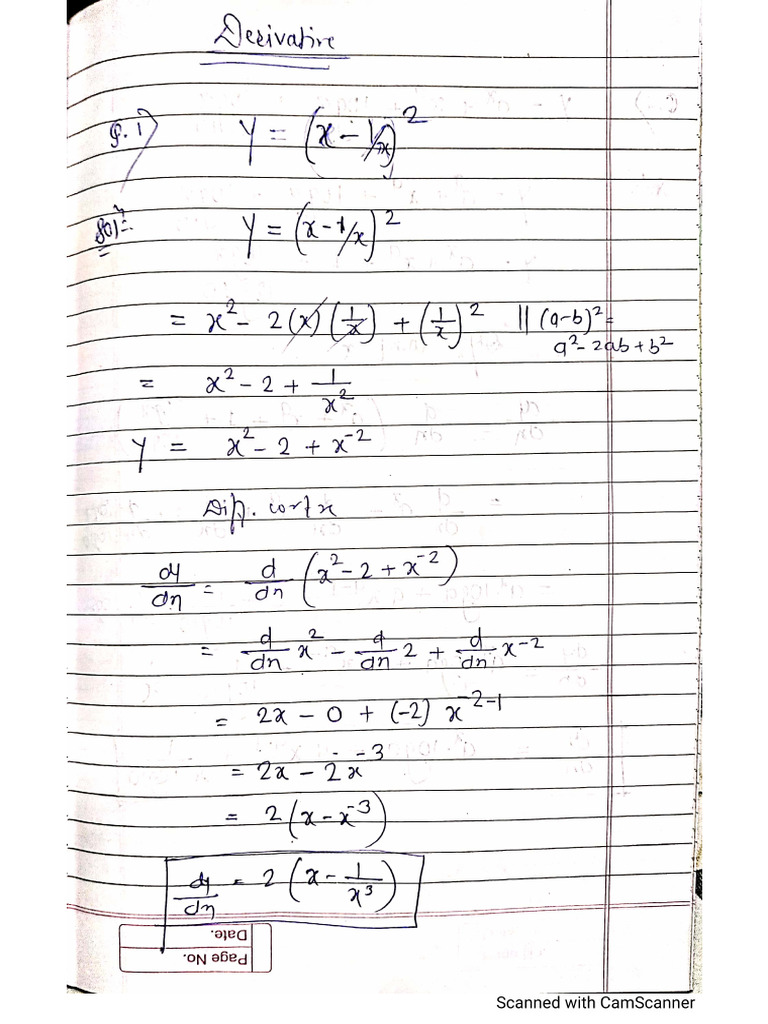 Derivative
Q.1) Y = (x - 1/x)²
Solⁿ:- Y = (x - 1/x)²
= x² - 2 (x) (1/x) + (1/x)² || (a-b)² =
a² - 2ab + b²
= x² - 2 + 1/x²
Y = x² - 2 + x⁻²
Diff. wrt x
dy/dn = d/dn (x² - 2 + x⁻²)
= d/dn x² - d/dn 2 + d/dn x⁻²
= 2x - 0 + (-2) x⁻²⁻¹
= 2x - 2x⁻³
= 2 (x - x⁻³)
dy/dn = 2 (x - 1/x³)
Date.
Page No.
Scanned with CamScanner